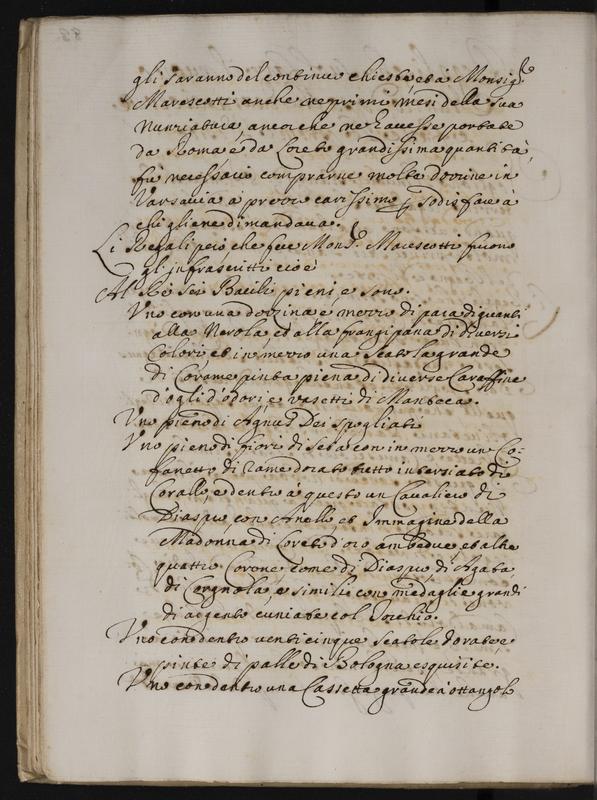 gli saranno del continuo chieste et à Monsig.re
Marescotti anche ne primi mesi della sua
Nunziatura, ancorche ne havesse portate
da Roma e da Loreto grandissima quantità,
fù necessario comprarne molte dozzine in
Varsavia à prezzo carissimo p sodisfare à
chi gliene dimandava.
Li Regali però che fece Mons.re Marescotti furono
gl'infrascritti cioè
Al Rè sei Bacili pieni e sono.
Uno con una dozzina e mezzo di para di guanti
alla Nerola, ed alla frangipana di diversi
Colori, et in mezzo una Scatola grande
di Corame pinta piena di diverse Caraffine
d'ogli d'odori e vasetti di Manteca.
Uno pieno di Agnus Dei spogliati
Uno pieno di fiori di seta con in mezzo un Co-
fanetto di rame dorato tutto intersiato di
Corallo, e dentro à questo un Cavaliere di
Diaspro con Anello et Immagine della
Madonna di Loreto d'oro ambedue, et altre
quattro Corone come di Diaspro di Agata
di Corgnola, e simili con medaglie grandi
di argento cuniate col Torchio.
Uno con dentro venticinque scatole dorate e
pinte di palle di Bologna esquisite.
Uno con dentro una Cassetta grande à ottangolo